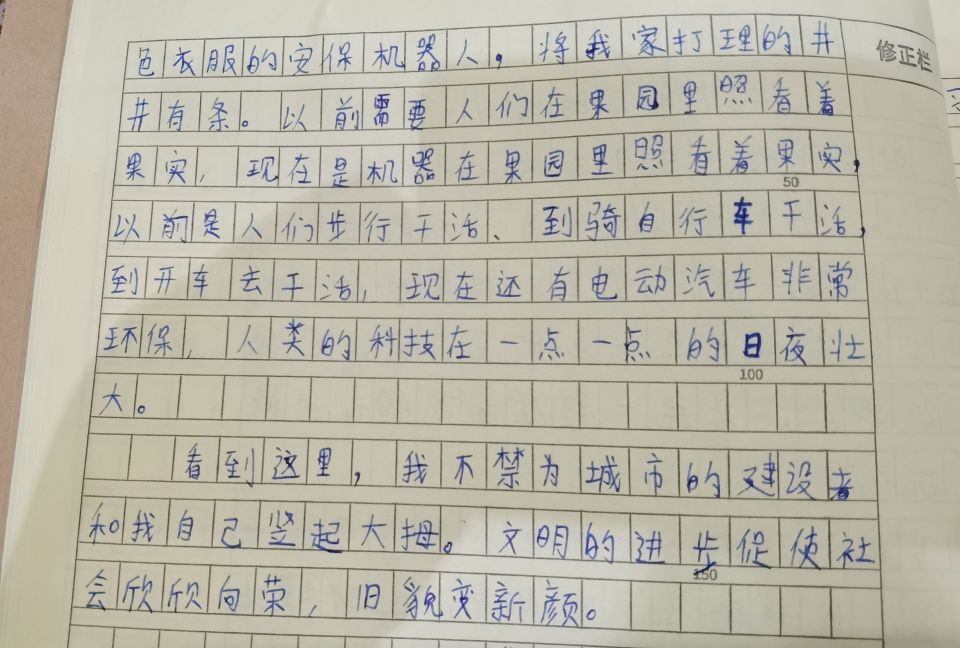 色衣服的安保机器人，将我家打理的井
修正栏
井有条。以前需要人们在果园里照看着
果实，现在是机器在果园里照看着果实，
50
以前是人们步行干活、到骑自行车干活，
到开车去干活，现在还有电动汽车非常
环保，人类的科技在一点一点的日夜壮
100
大。
看到这里，我不禁为城市的建设者
和我自己竖起大拇。文明的进步促使社
150
会欣欣向荣，旧貌变新颜。